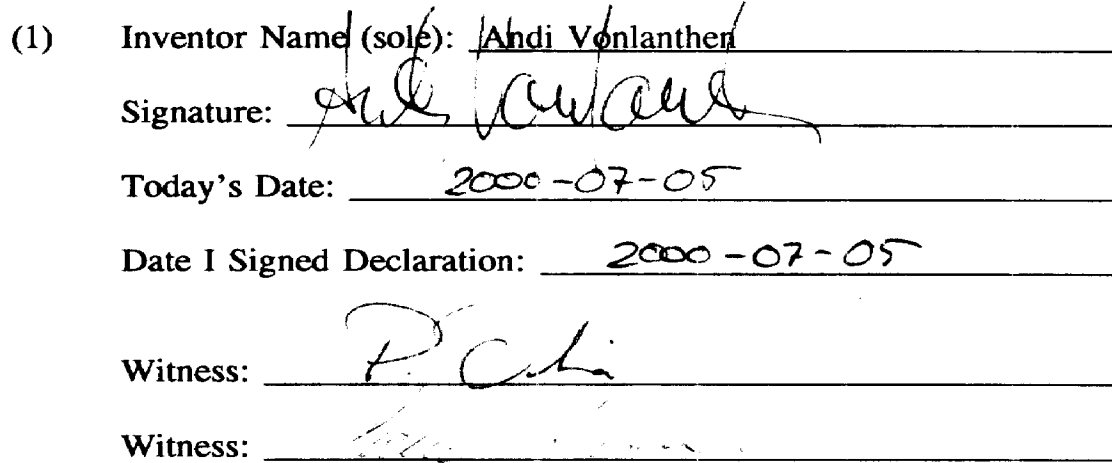 (1) Inventor Name (sole): Andi Vonlanthen
Signature: Andi Vonlanthen
Today's Date: 2000-07-05
Date I Signed Declaration: 2000-07-05
Witness: P.
Witness: